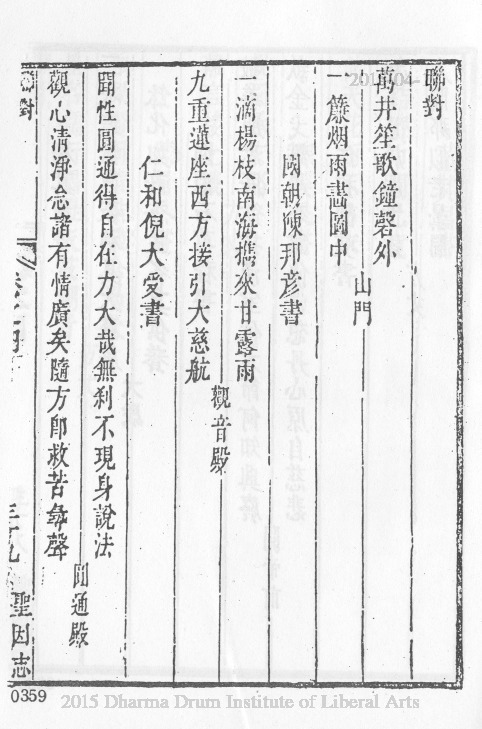 聯對
萬井笙歌鐘磬外
山門
一簾烟雨畵圖中
國朝陳邦彥書
一滴楊枝南海擕來甘露雨
觀音殿
九重蓮座西方接引大慈航
仁和倪大愛書
聞性圓通得自在力大哉無刹不現身說法
圓通殿
觀心清淨念諸有情廣矣隨方卽救苦尋聲
聯對
聖因志
0359
2015 Dharma Drum Institute of Liberal Arts